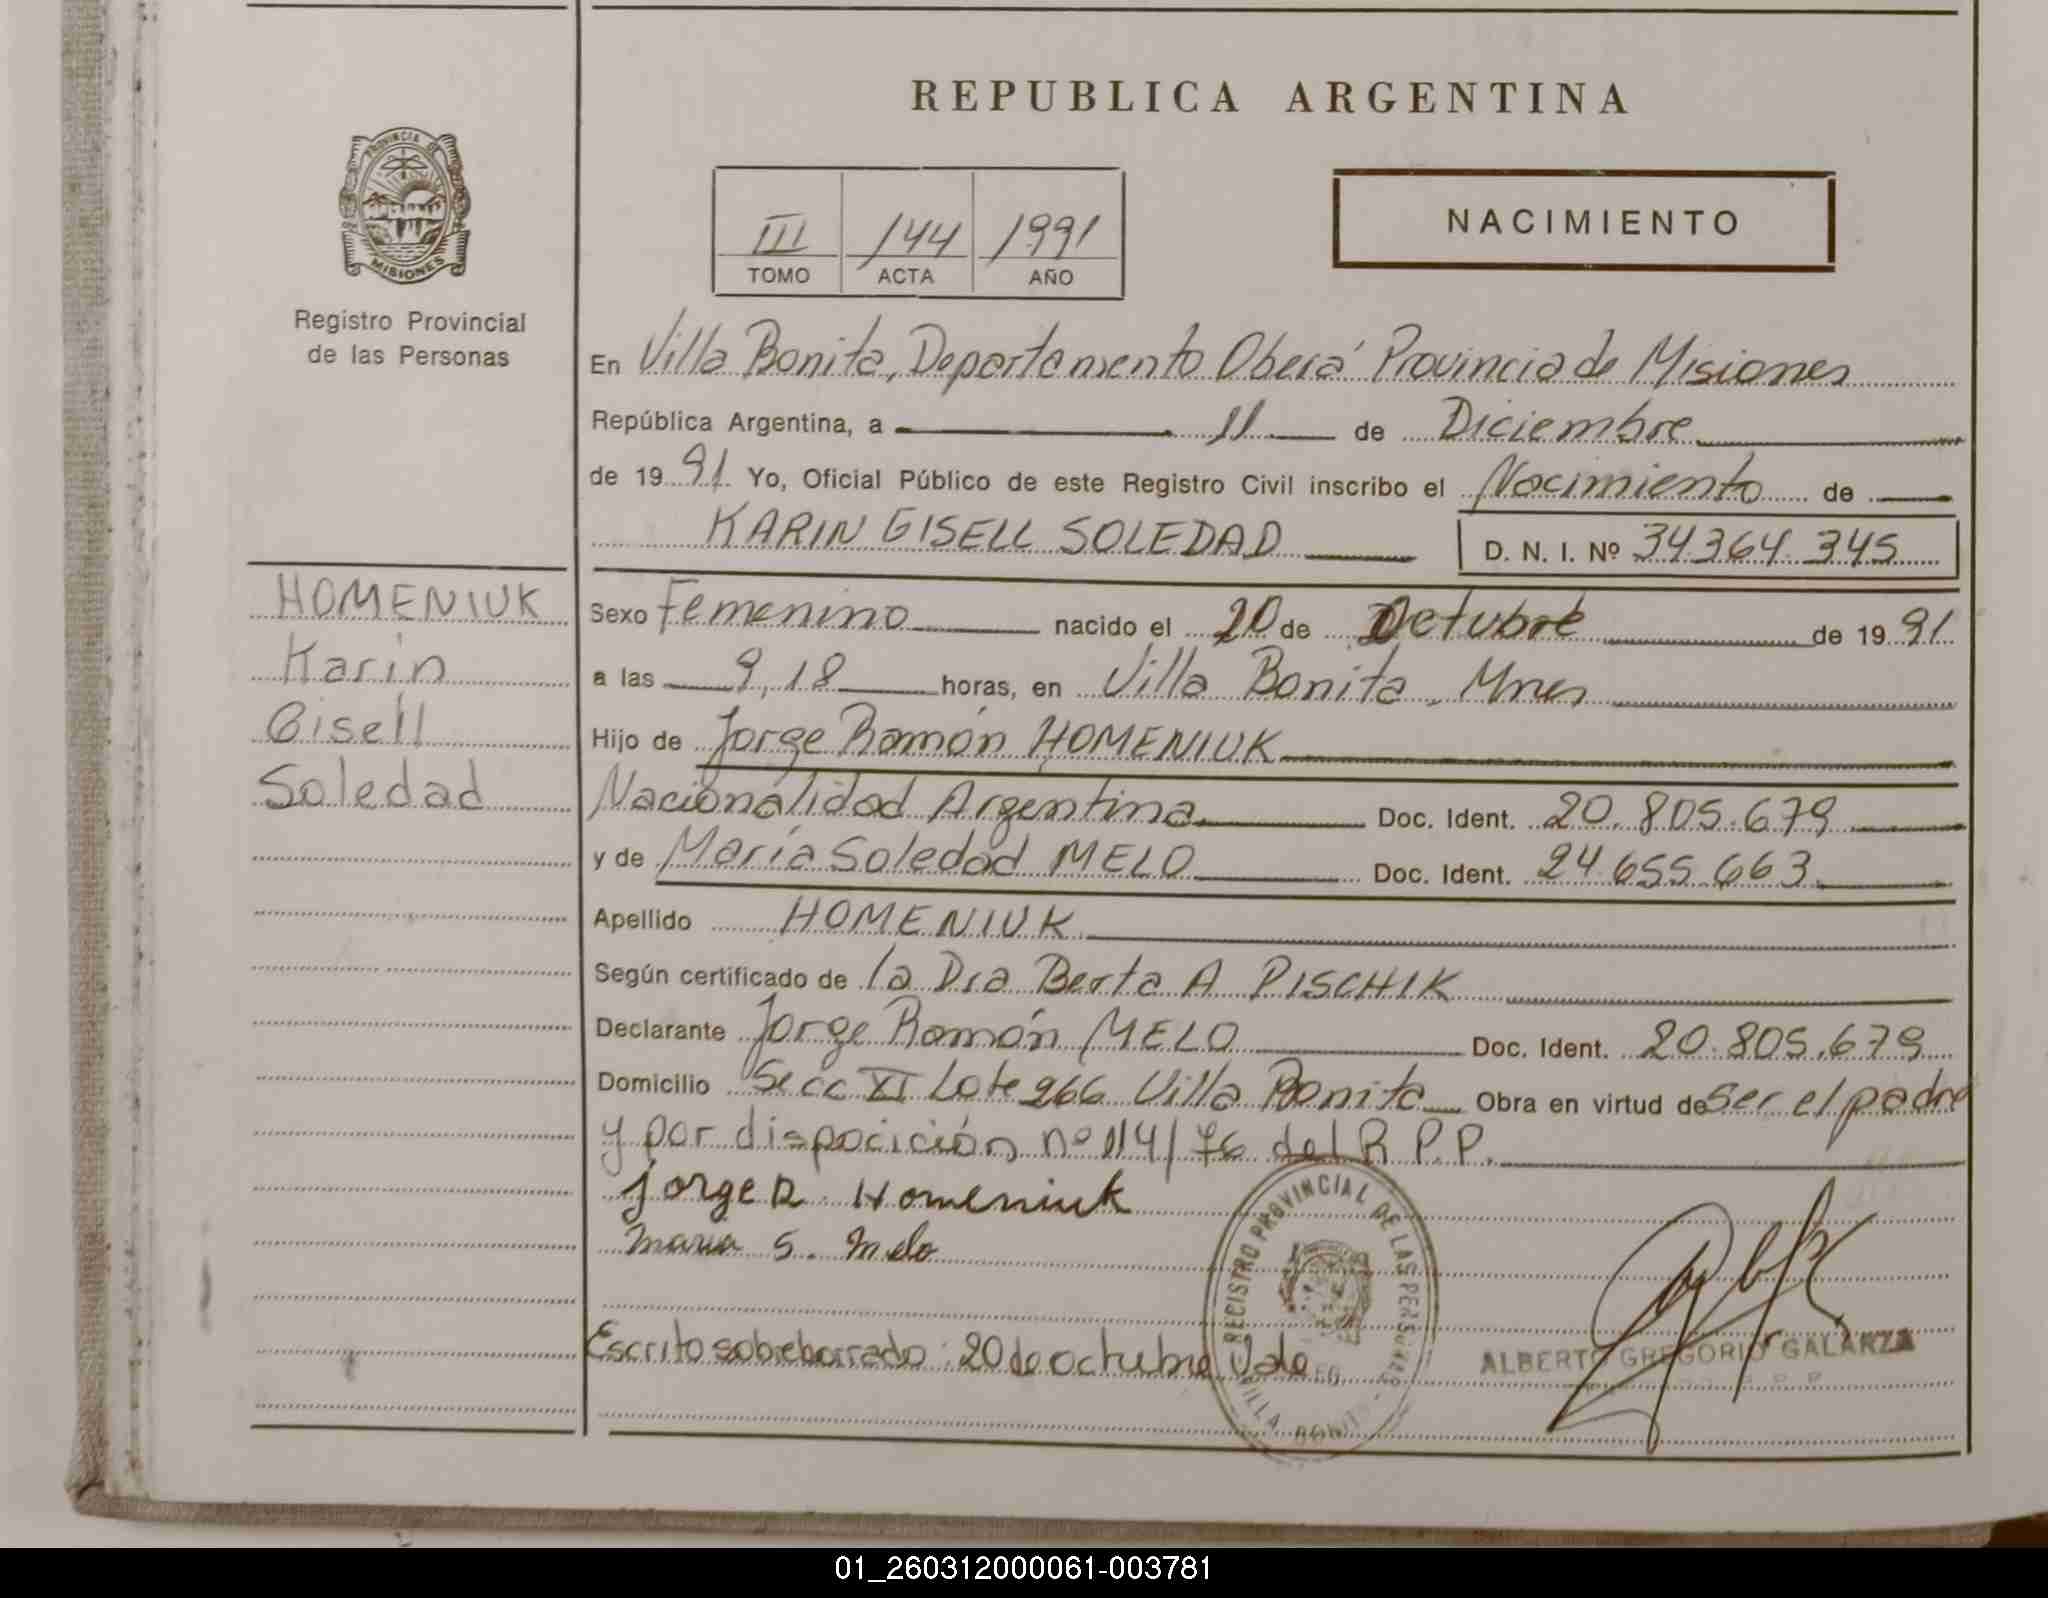 REPUBLICA ARGENTINA
PROVINCIA DE
MISIONES
Registro Provincial
de las Personas
III /144 1991
TOMO ACTA AÑO
NACIMIENTO
En Villa Bonita, Departamento Oberá Provincia de Misiones
República Argentina, a 11 de Diciembre
de 1991 Yo, Oficial Público de este Registro Civil inscribo el Nacimiento de
KARIN GISELL SOLEDAD D. N. I. Nº 34.364.345
HOMENIUK
Karin
Gisell
Soledad
Sexo Femenino nacido el 20 de Octubre de 1991
a las 9,18 horas, en Villa Bonita, Mnes
Hijo de Jorge Ramón HOMENIUK
Nacionalidad Argentina Doc. Ident. 20.805.679
y de María Soledad MELO Doc. Ident. 24.655.663
Apellido HOMENIUK
Según certificado de la Dra Berta A PISCHIK
Declarante Jorge Ramón MELO Doc. Ident. 20.805.679
Domicilio Secc XI Lote 266 Villa Bonita Obra en virtud de Ser el padre
y por disposición nº 114/76 del R.P.P.
Jorge R. Homeniuk
Maria S. Melo
REGISTRO PROVINCIAL DE LAS PERSONAS
VILLA BONITA
Escrito sobreborrado: 20 de octubre Vale
ALBERTO GREGORIO GALARZA
01_260312000061-003781